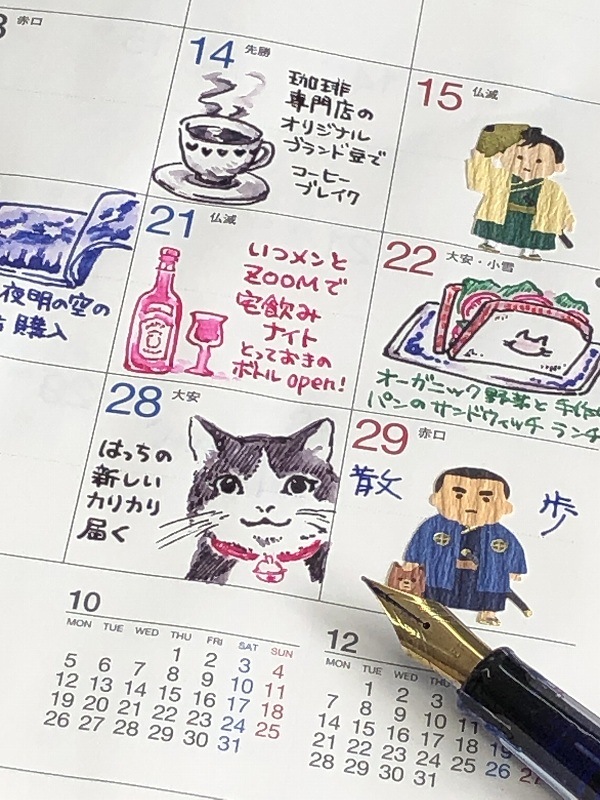 赤口
14 先勝
珈琲
専門店の
オリジナル
ブランド豆で
コーヒー
ブレイク
15 仏滅
夜明の空の
購入
21 仏滅
いつメンと
ZOOMで
宅飲み
ナイト
とっておきの
ボトルopen!
22 大安・小雪
オーガニック野菜と手作
パンのサンドウィッチ ランチ
28 大安
はっちの
新しい
カリカリ
届く
29 赤口
散歩
10
MON TUE WED THU FRI SAT SUN
1 2 3 4
5 6 7 8 9 10 11
12 13 14 15 16 17 18
19 20 21 22 23 24 25
26 27 28 29 30 31
12
MON TUE WED THU
1 2 3
7 8 9 10 11
14 15 16 17 18 19
21 22 23 24 25 26 27
28 29 30 31